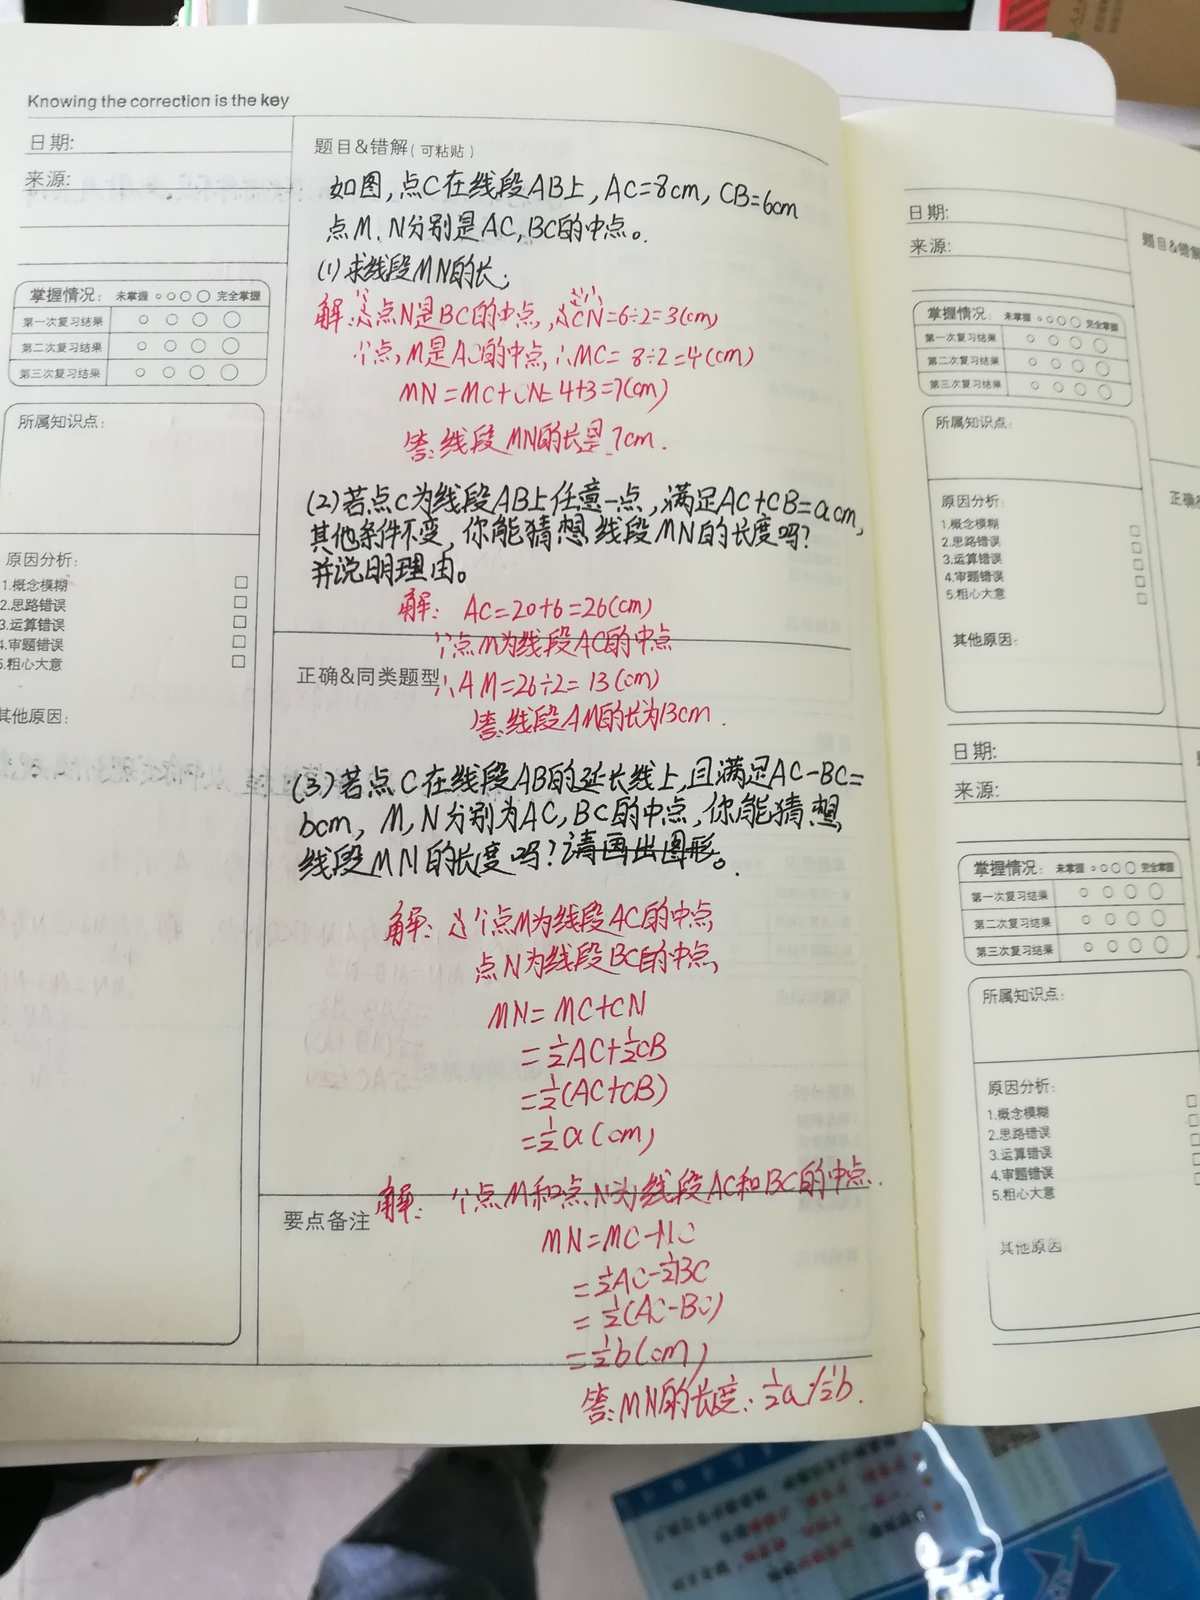 Knowing the correction is the key
日期:
来源:
掌握情况: 未掌握 ○○○○ 完全掌握
第一次复习结果 ○ ○ ○ ○
第二次复习结果 ○ ○ ○ ○
第三次复习结果 ○ ○ ○ ○
所属知识点:
原因分析:
1.概念模糊 □
2.思路错误 □
3.运算错误 □
4.审题错误 □
5.粗心大意 □
其他原因:
题目&错解(可粘贴)
如图,点C在线段AB上,AC=8cm,CB=6cm
点M、N分别是AC,BC的中点。
(1)求线段MN的长;
解:∵点N是BC的中点,∴CN=6÷2=3(cm)
∵点M是AC的中点,∴MC=8÷2=4(cm)
MN=MC+CN=4+3=7(cm)
答:线段MN的长是7cm.
(2)若点C为线段AB上任意一点,满足AC+CB=acm,
其他条件不变,你能猜想线段MN的长度吗?
并说明理由。
解: AC=20+6=26(cm)
∵点M为线段AC的中点
正确&同类题型
∴AM=26÷2=13(cm)
答:线段AM的长为13cm.
(3)若点C在线段AB的延长线上,且满足AC-BC=
bcm,M,N分别为AC,BC的中点,你能猜想
线段MN的长度吗?请画出图形。
解:∵点M为线段AC的中点
点N为线段BC的中点
MN=MC+CN
=½AC+½CB
=½(AC+CB)
=½a(cm)
解:∵点M和点N为线段AC和BC的中点.
要点备注
MN=MC-NC
=½AC-½BC
=½(AC-BC)
=½b(cm)
答:MN的长度:½a/½b.
日期:
来源:
题目&错解
掌握情况: 未掌握 ○○○○ 完全掌握
第一次复习结果 ○ ○ ○ ○
第二次复习结果 ○ ○ ○ ○
第三次复习结果 ○ ○ ○ ○
所属知识点:
原因分析:
1.概念模糊 □
2.思路错误 □
3.运算错误 □
4.审题错误 □
5.粗心大意 □
其他原因:
正确
日期:
来源:
掌握情况: 未掌握 ○○○○ 完全掌握
第一次复习结果 ○ ○ ○ ○
第二次复习结果 ○ ○ ○ ○
第三次复习结果 ○ ○ ○ ○
所属知识点:
原因分析:
1.概念模糊 □
2.思路错误 □
3.运算错误 □
4.审题错误 □
5.粗心大意 □
其他原因